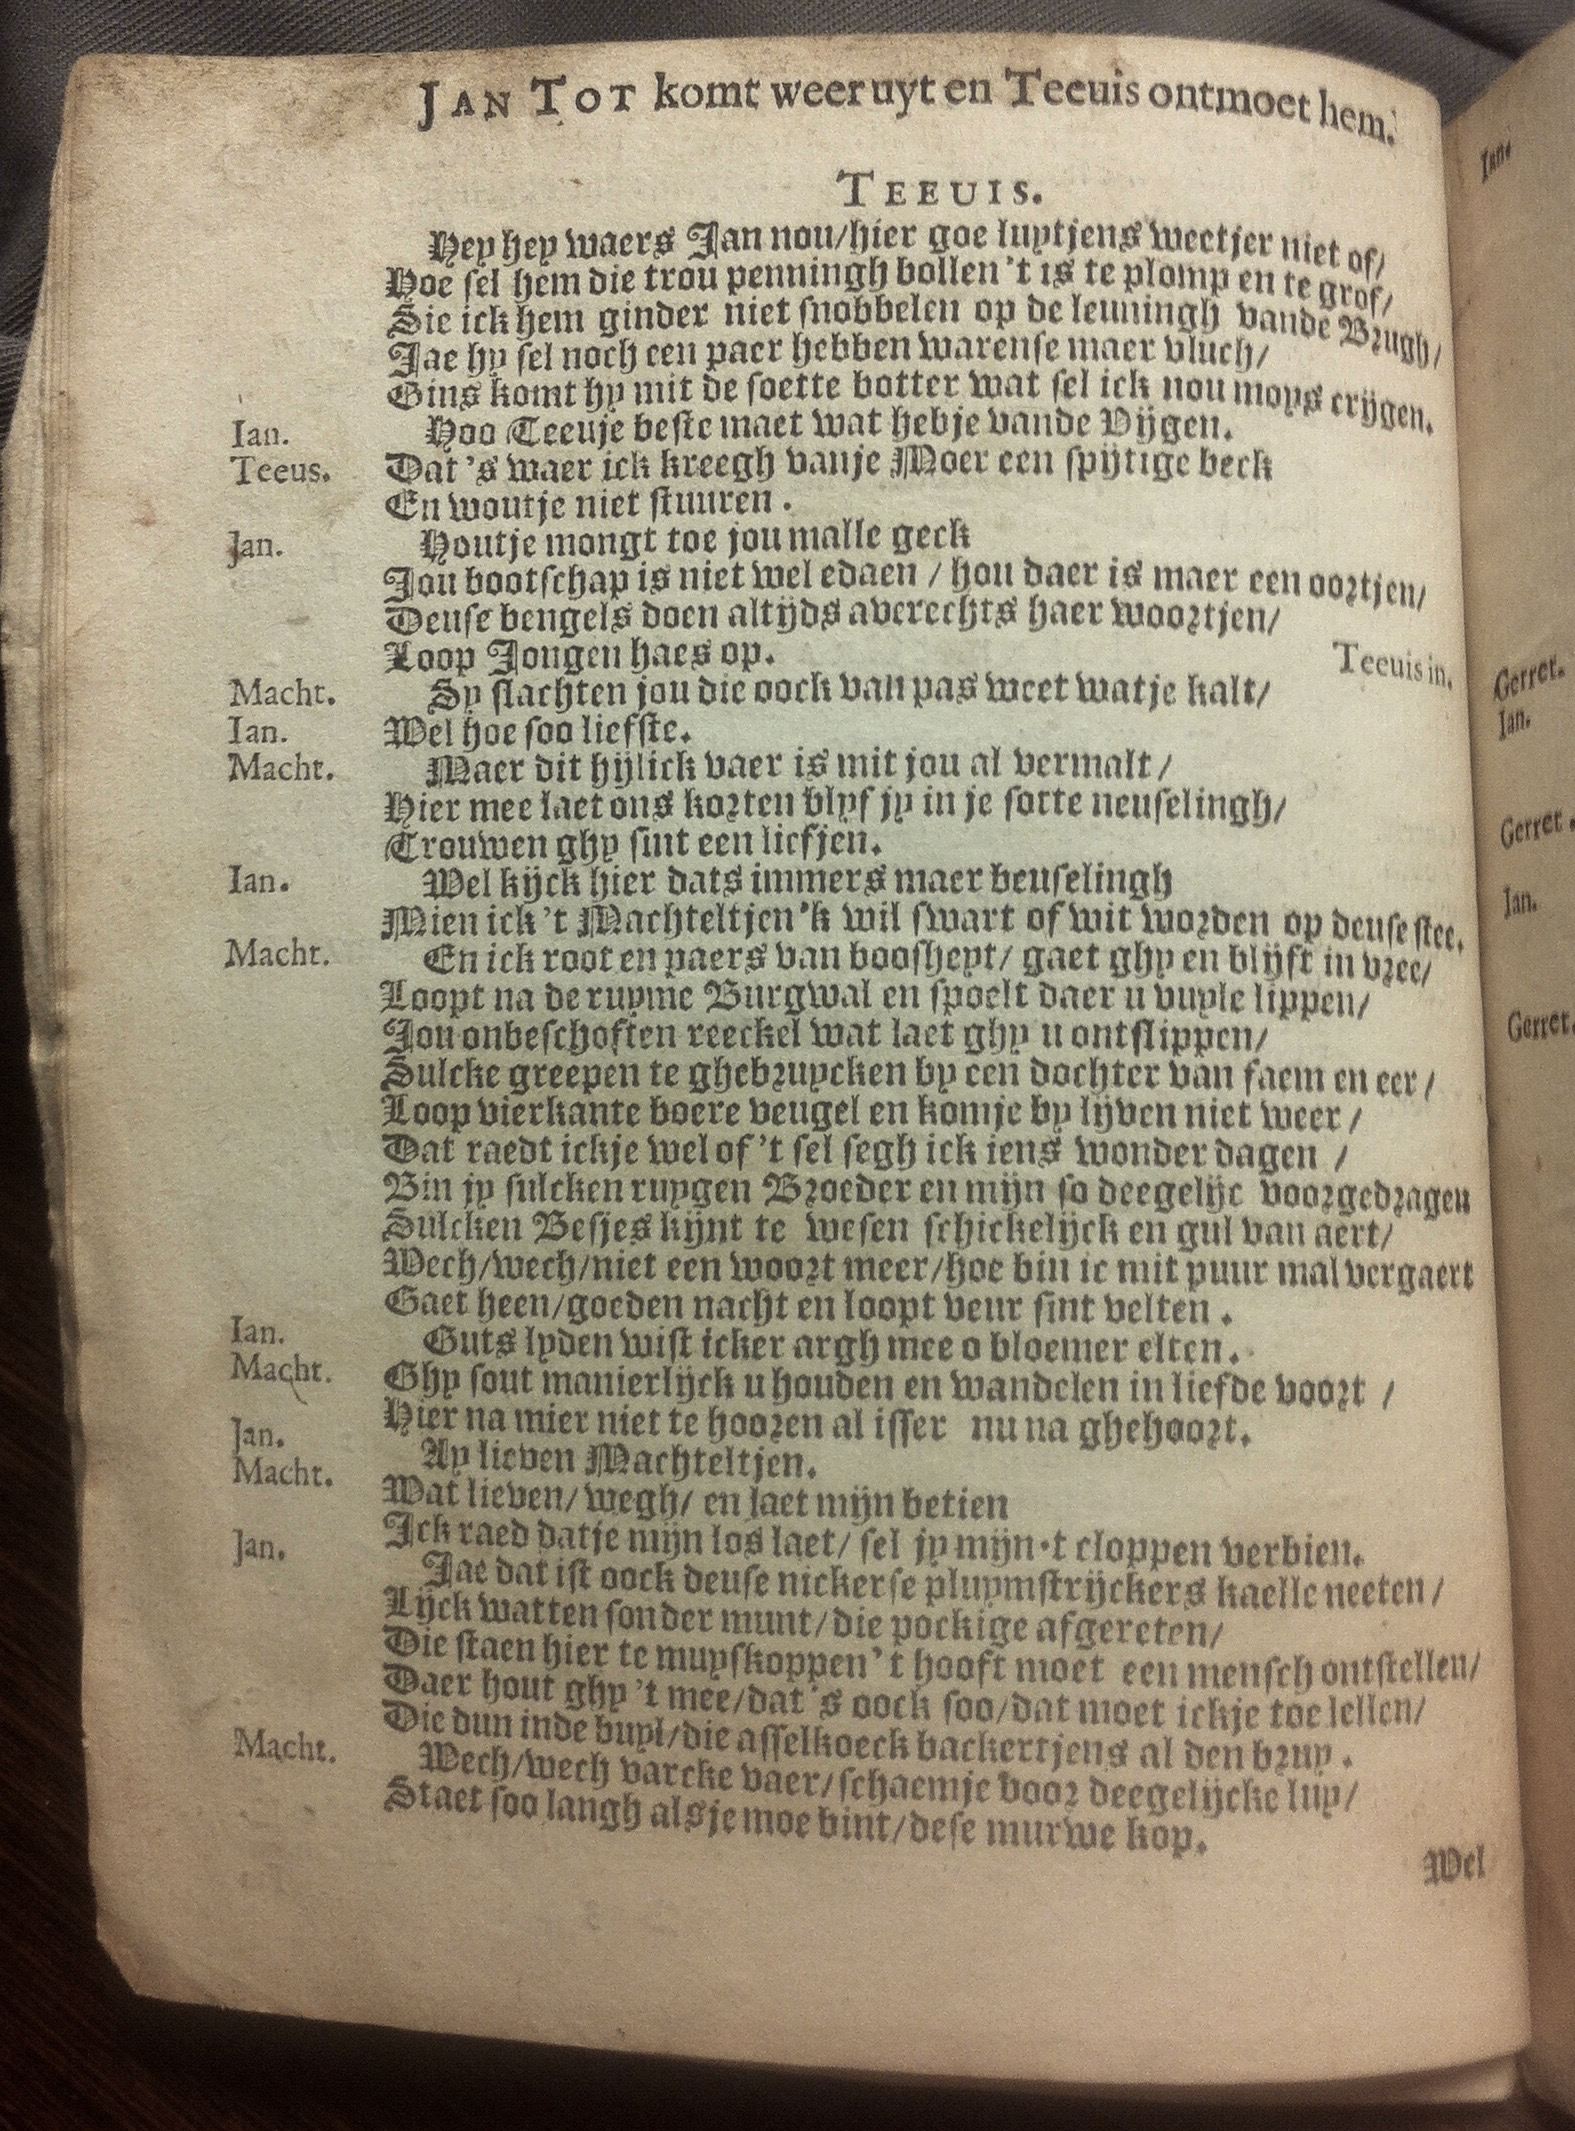 JAN TOT komt weer uyt en Teeuis ontmoet hem.
TEEUIS.
Hey hey waers Jan nou/hier goe luytjens weetjer niet of/
Hoe sel hem die trou penningh bollen 't is te plomp en te grof/
Sie ick hem ginder niet snobbelen op de leuningh vande Brugh/
Jae hy sel noch een paer hebben warense maer vluch/
Gins komt hy mit de soette botter wat sel ick nou moys crijgen.
Ian. Hoo Teeuje beste maet wat hebje vande Vijgen.
Teeus. Dat 's waer ick kreegh vanje Moer een spijtige beck
En woutje niet stuuren.
Jan. Houtje mongt toe jou malle geck
Jou bootschap is niet wel edaen / hou daer is maer een oortjen/
Deuse bengels doen altijds averechts haer woortjen/
Loop Jongen haes op. Teeuis in.
Macht. Sy slachten jou die oock van pas weet watje kalt/
Ian. Wel hoe soo liefste.
Macht. Maer dit hijlick vaer is mit jou al vermalt /
Hier mee laet ons korten blyf jy in je sotte neuselingh/
Trouwen ghy sint een liefjen.
Ian. Wel kijck hier dats immers maer beuselingh
Mien ick 't Machteltjen 'k wil swart of wit worden op deuse stee.
Macht. En ick root en paers van boosheyt/ gaet ghy en blijft in vree/
Loopt na de ruyme Burgwal en spoelt daer u vuyle lippen/
Jou onbeschoften reeckel wat laet ghy u ontslippen/
Sulcke greepen te ghebruycken by een dochter van faem en eer /
Loop vierkante boere veugel en komje by lijven niet weer /
Dat raedt ickje wel of 't sel segh ick iens wonder dagen /
Bin jy sulcken ruygen Broeder en mijn so deegelijc voorgedragen
Sulcken Besjes kijnt te wesen schickelijck en gul van aert/
Wech/wech/niet een woort meer/hoe bin ic mit puur mal vergaert
Gaet heen/goeden nacht en loopt veur sint velten.
Ian. Guts lyden wist icker argh mee o bloemer elten.
Macht. Ghy sout manierlijck u houden en wandelen in liefde voort /
Hier na mier niet te hooren al isser nu na ghehoort.
Jan. Ay lieven Machteltjen.
Macht. Wat lieven/ wegh/ en laet mijn betien
Ick raed datje mijn los laet/ sel jy mijn 't cloppen verbien.
Jan. Jae dat ist oock deuse nickerse pluymstrijckers kaelle neeten /
Lijck watten sonder munt/die pockige afgereten/
Die staen hier te muyskoppen 't hooft moet een mensch ontstellen/
Daer hout ghy 't mee/dat 's oock soo/dat moet ickje toe lellen/
Die dun inde buyl/die asselkoeck backertjens al den bruy.
Macht. Wech/wech varcke vaer/schaemje voor deegelijcke luy/
Staet soo langh alsje moe bint/dese murwe kop.
Wel
Ian.
Gerret.
Ian.
Gerret.
Jan.
Gerret.